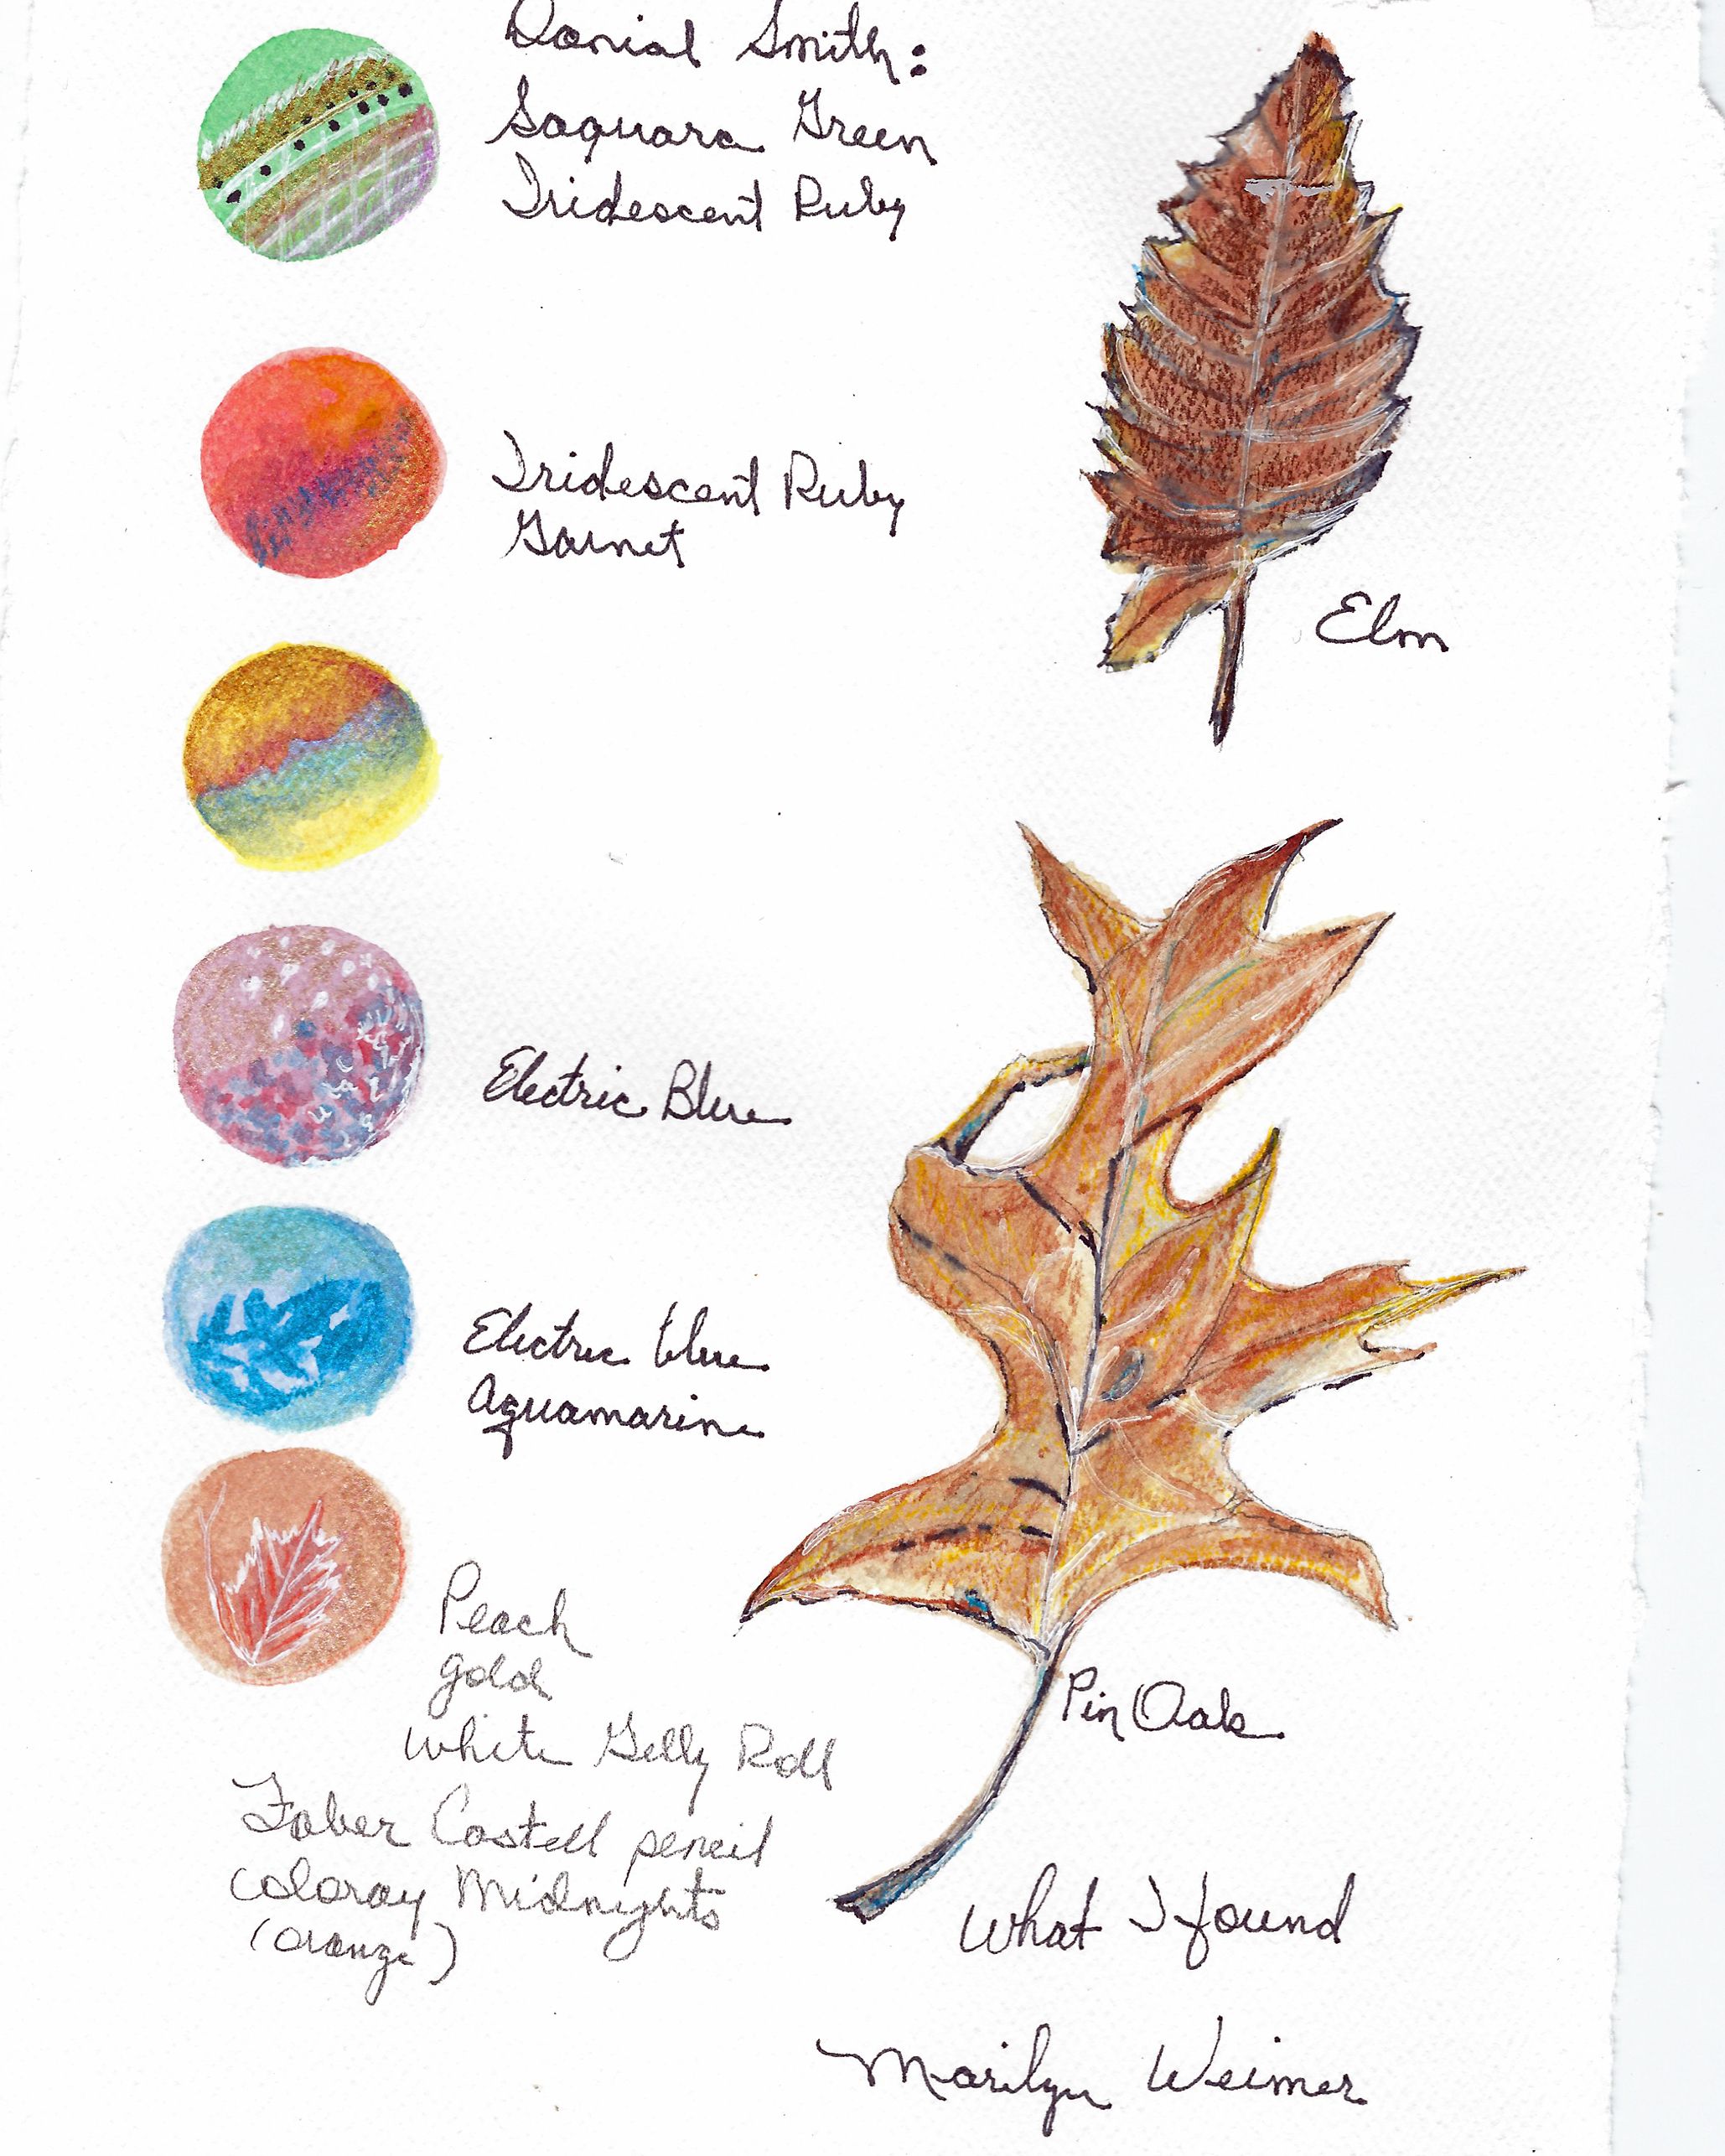 Danial Smith:
Saquara Green
Iridescent Ruby
Iridescent Ruby
Garnet
Elm
Electric Blue
Electric blue
Aquamarine
Peach
gold
white Gelly Roll
Faber Castell pencil
coloray Midnights
(orange)
Pin Oak
What I found
Marilyn Weimer